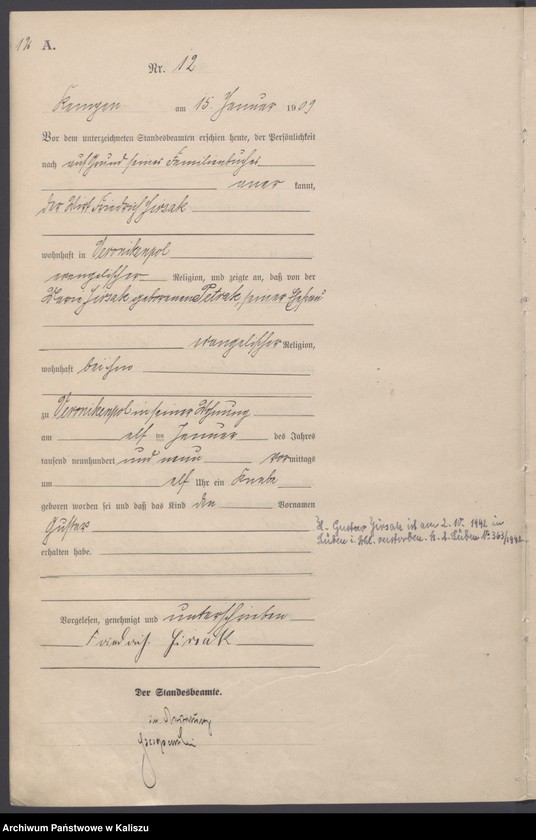 12 A.
Nr. 12
Kempen am 15. Januar 1909
Vor dem unterzeichneten Standesbeamten erschien heute, der Persönlichkeit
nach auf Grund seines Familienbuches
aner kannt,
der Wirt Friedrich Jirsak
wohnhaft in Veronikenpol
evangelischer Religion, und zeigte an, daß von der
Jirsak geborenen Petrak, seiner Ehefrau
evangelischer Religion,
wohnhaft bei ihm
zu Veronikenpol in seiner Wohnung
am elf ten Januar des Jahres
tausend neunhundert und neun vormittags
um elf Uhr ein Knabe
geboren worden sei und daß das Kind den Vornamen
Gustav
erhalten habe.
Vorgelesen, genehmigt und unterschrieben
Friedrich Jirsak
Der Standesbeamte.
in Vertretung
Gustav Jirsak ist am 2. 10. 1942 in
Lüben i. Schl. verstorben. St. A. Lüben No 363/1942.
Archiwum Państwowe w Kaliszu